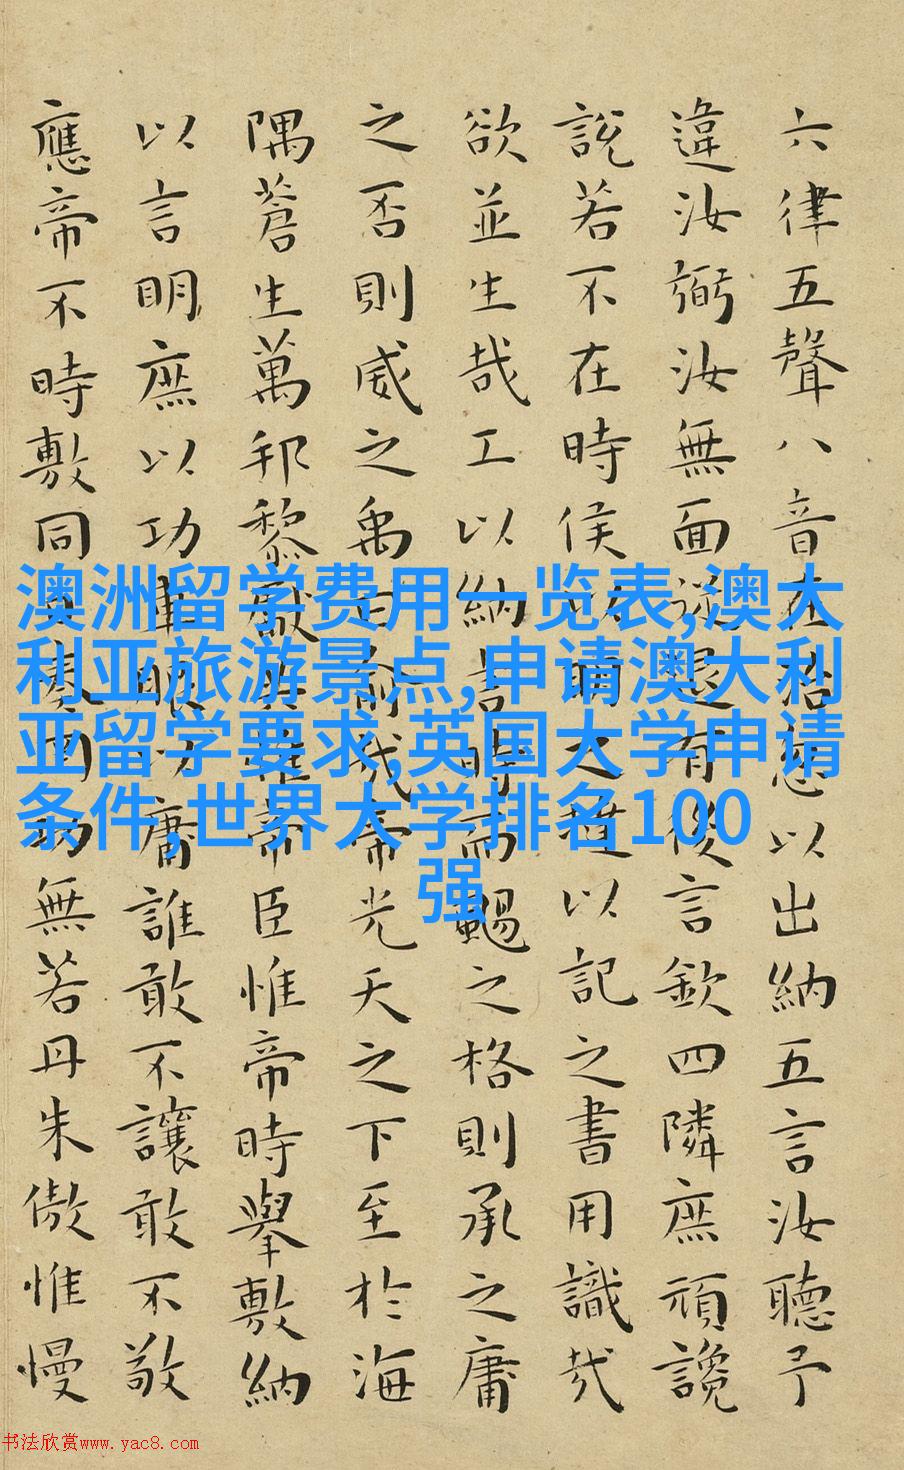 六律五聲八音在治忽以出納五言汝聽予
違汝弼汝無面從退有後言欽四隣庶頑讒
說若不在時侯以明之撻以記之書用識哉
欲並生哉工以納言時而颺之格則承之庸
之否則威之禹曰俞哉帝光天之下至於海
隅蒼生萬邦黎獻共惟帝臣惟帝時舉敷納
以言明庶以功車服以庸誰敢不讓敢不敬
應帝不時敷同日奏罔功無若丹朱傲惟慢
澳洲留学费用一览表,澳大
利亚旅游景点,申请澳大利
亚留学要求,英国大学申请
条件,世界大学排名100
强
书法欣赏www.yac8.com